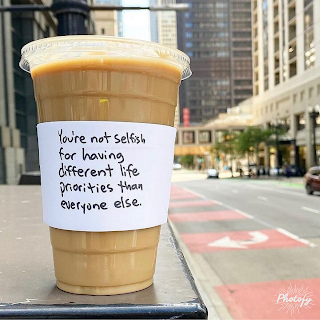 You're not selfish
for having
different life
priorities than
everyone else.
Photofy